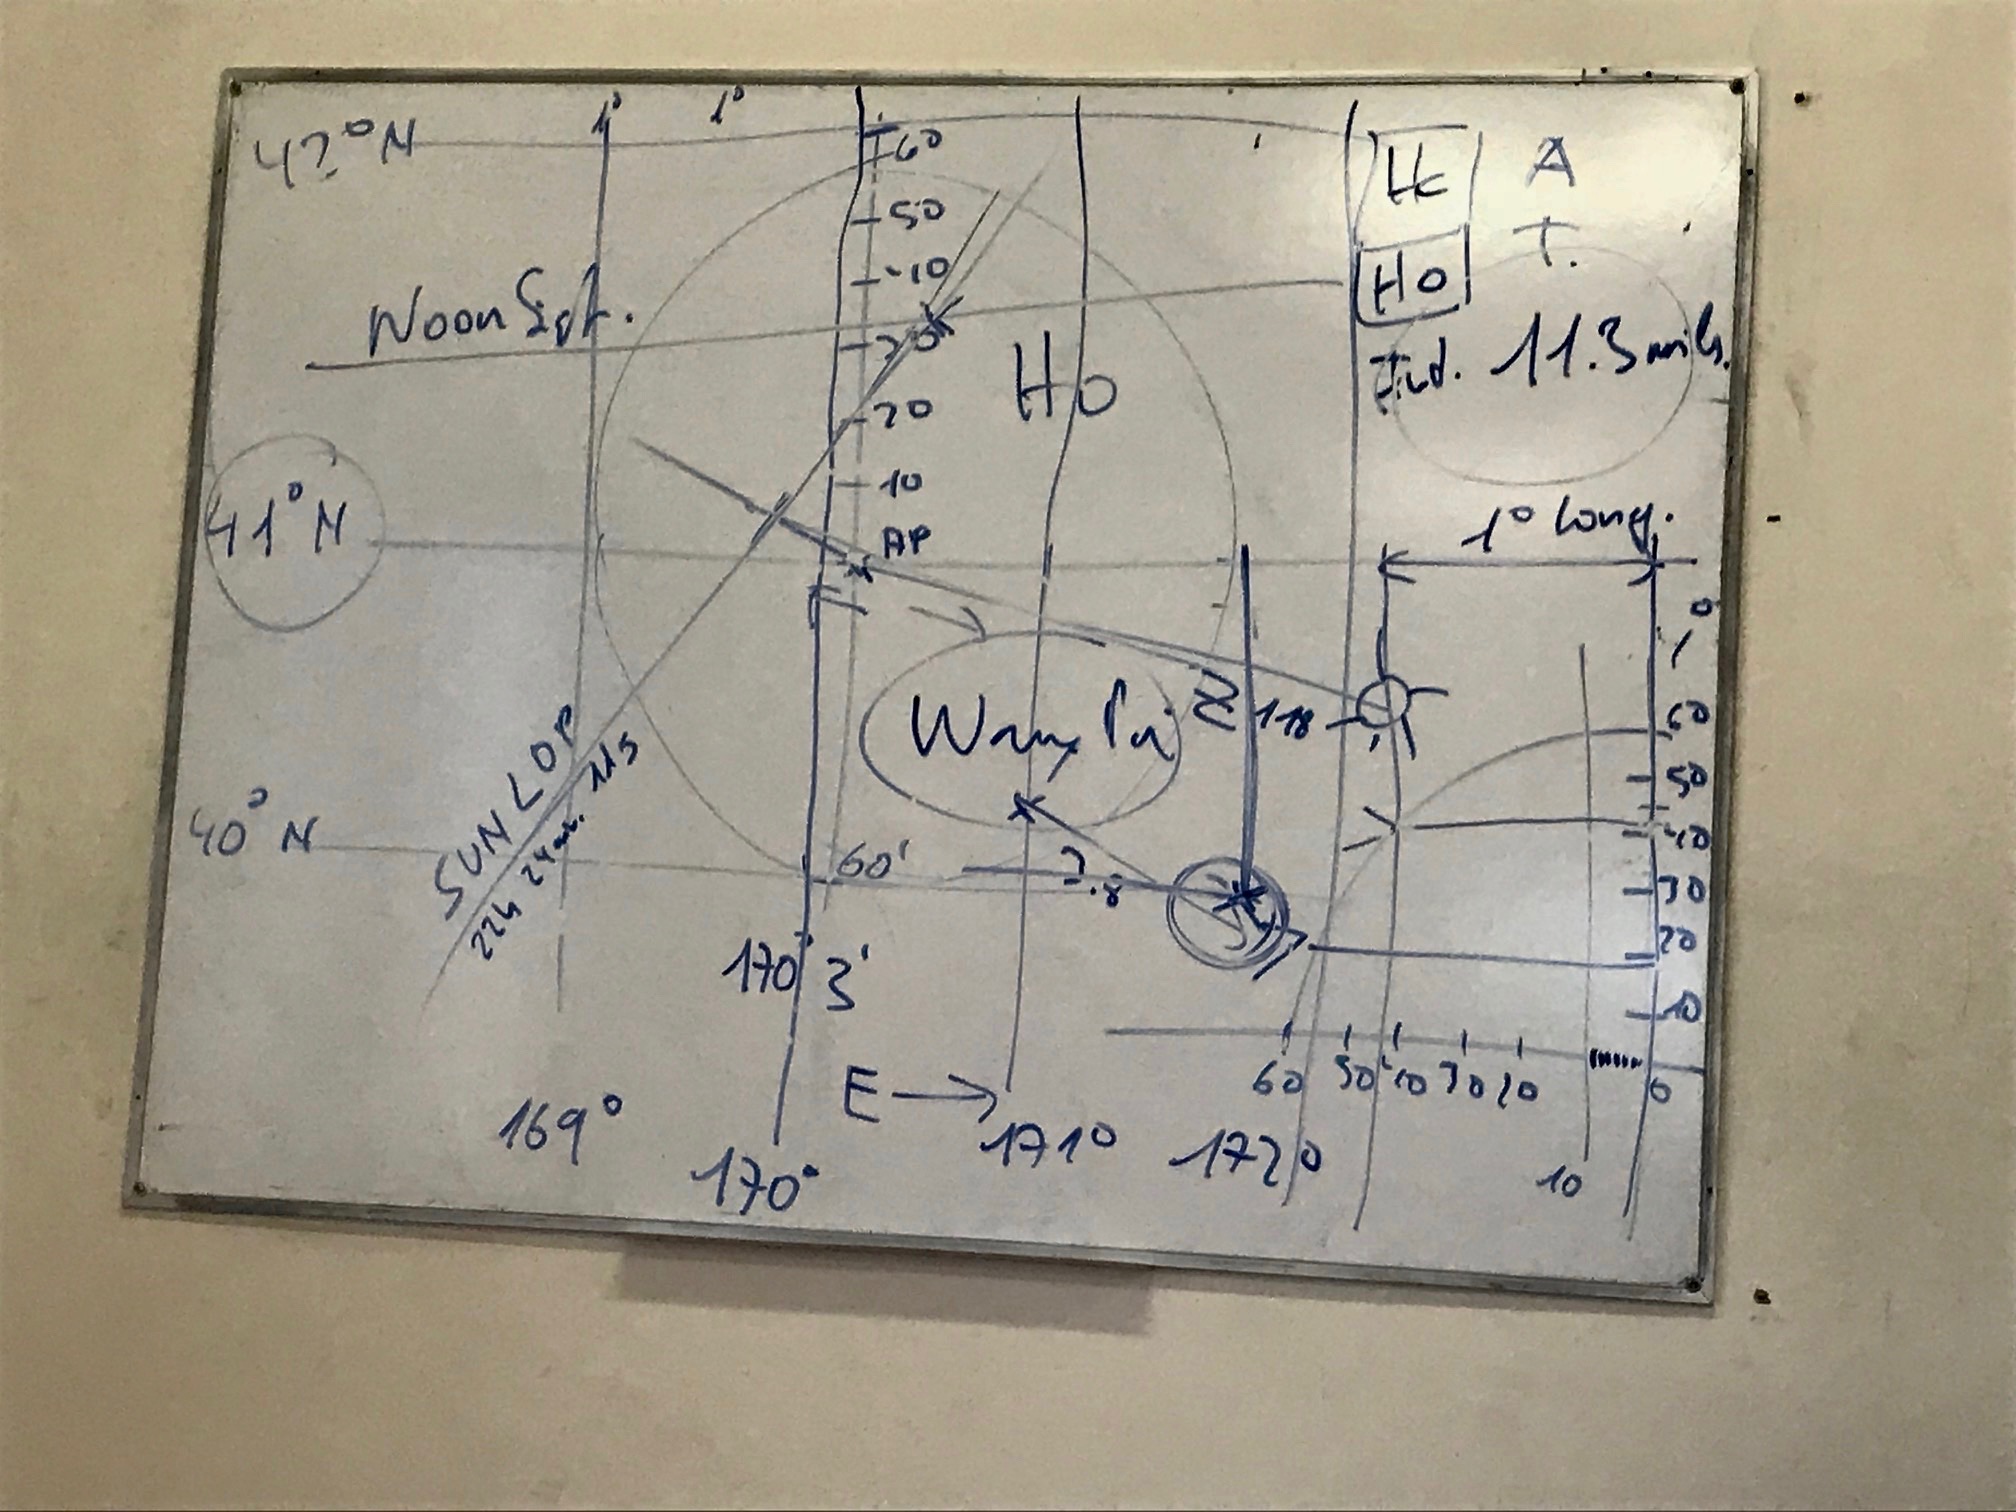 42°N
1° 1°
60
50
40
30
20
10
AP
Hc
A
T.
Ho
11.3 mils.
Noon
Ho
41°N
1° Long.
0
60
50
40
30
20
10
Z 118
SUN LOP
22h 24m. 11s
40°N
60'
170° 3'
60 50 40 30 20 0
10
E →
169°
170°
171°
172°